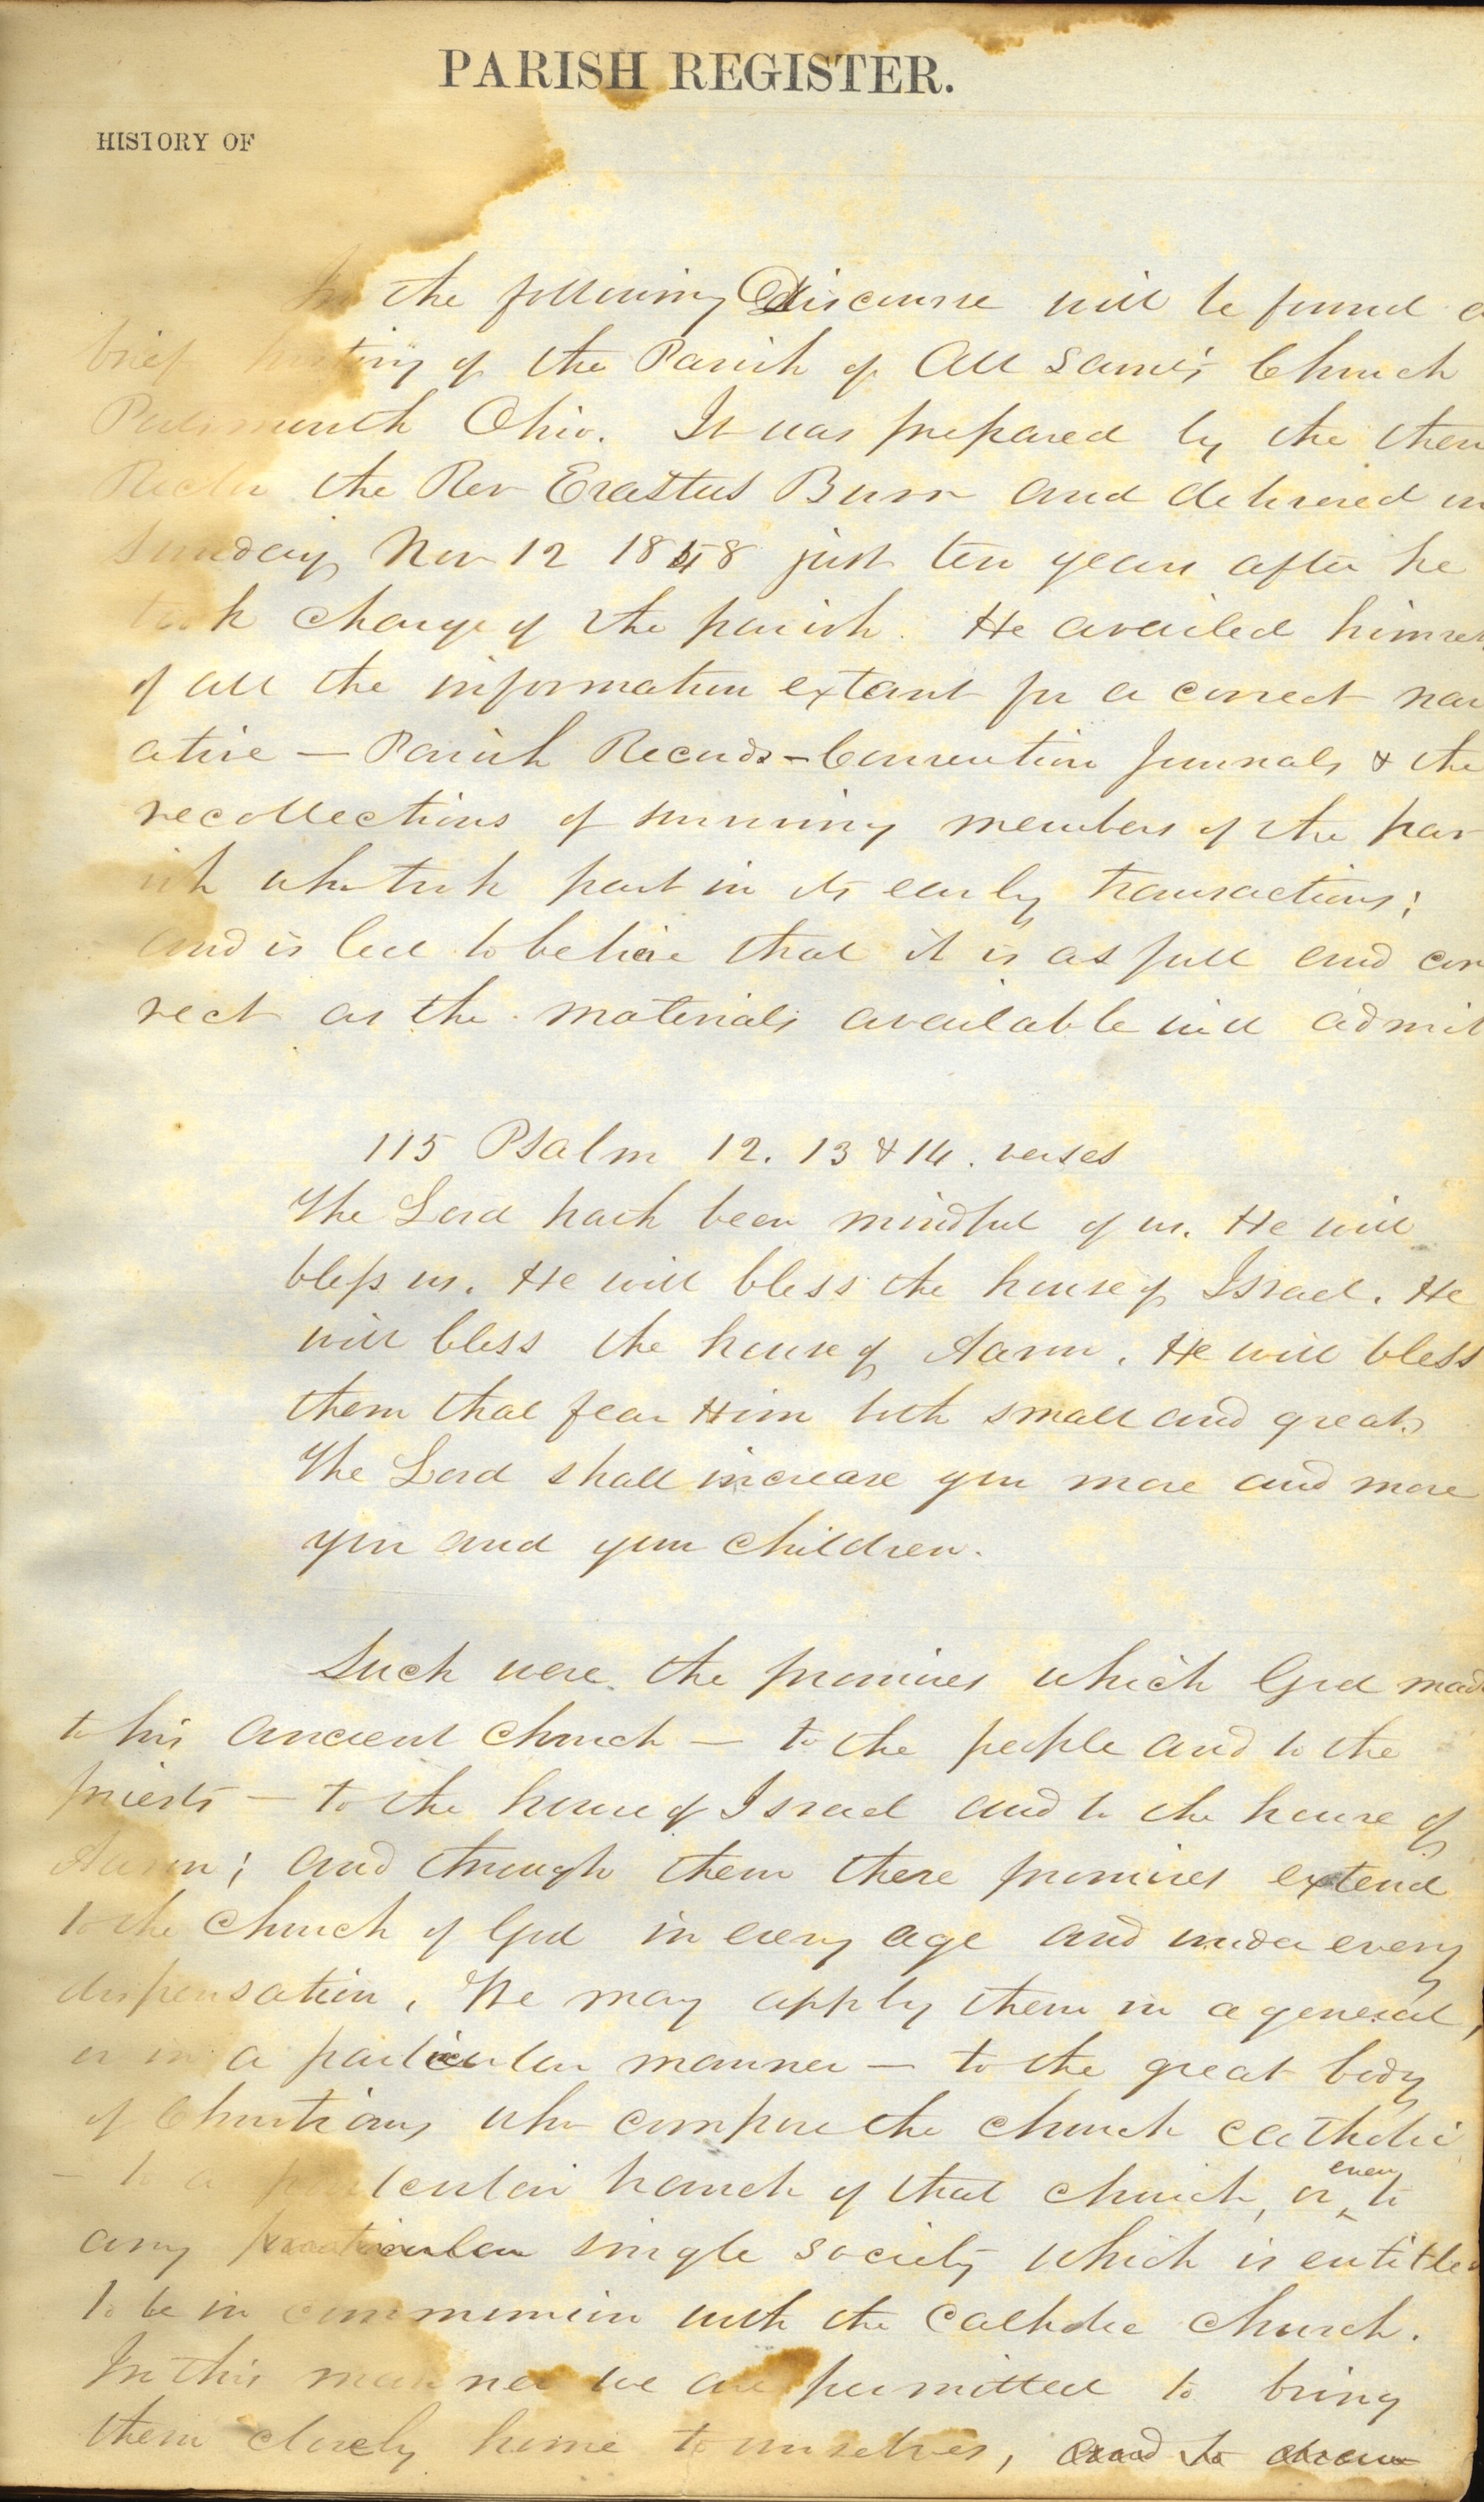 PARISH REGISTER.
HISTORY OF
In the following Discourse will be found a
brief history of the Parish of All Saints Church
Portsmouth Ohio. It was prepared by the then
Rector the Rev Erastus Burr and delivered on
Sunday Nov 12 1848 just ten years after he
took charge of the parish. He availed himsel
of all the information extant for a correct nar
ative — Parish Records - Convention Journals & the
recollections of surviving members of the par
ish who took part in its early transactions;
and is led to believe that it is as full and cor
rect as the materials available will admit
115 Psalm 12. 13 & 14. verses
The Lord hath been mindful of us. He will
bless us. He will bless the house of Israel. He
will bless the house of Aaron. He will bless
them that fear Him both small and great.
The Lord shall increase you more and more
you and your children.
Such were the promises which God made
to his ancient church — to the people and to the
priests — to the house of Israel and to the house of
Aaron; and through them these promises extend
to the church of God in every age and under every
dispensation. We may apply them in a general,
or in a particular manner — to the great body
of Christians who compose the church catholic
— to a particular branch of that church, or even to
any particular single society which is entitled
to be in communion with the Catholic church.
In this manner we are permitted to bring
them closely home to ourselves, and to draw